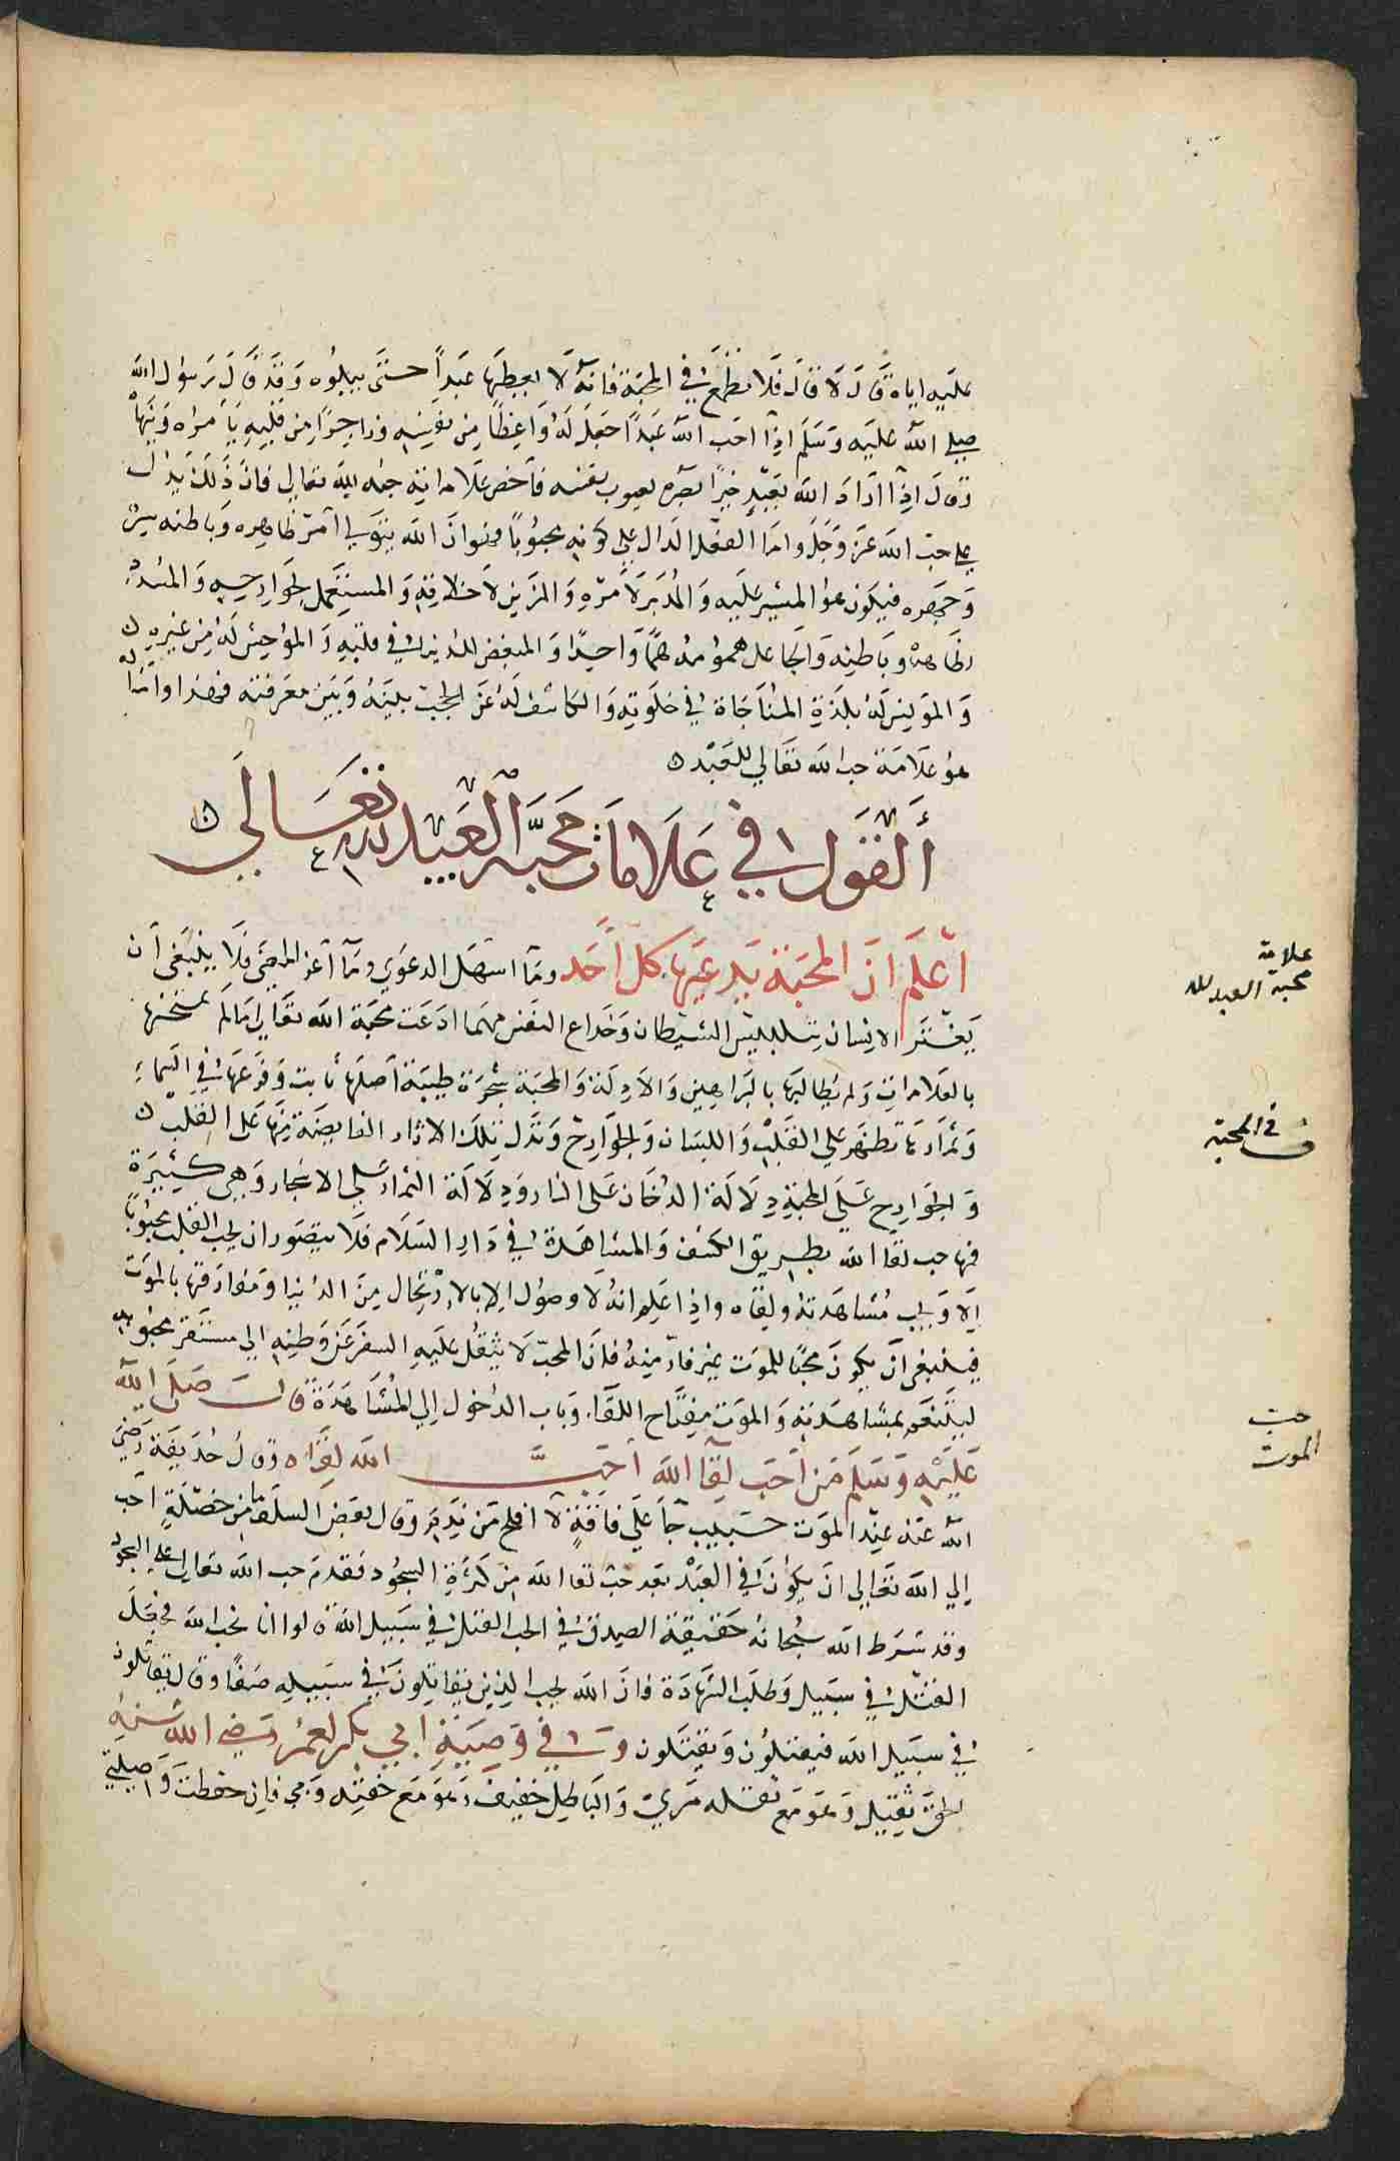 عليه اياه قال لا قال فلا تطمع في المحبة فانه لا يعطيها عبدا حتى يبلوه وقد قال رسول الله
صلى الله عليه وسلم اذا احب الله عبدا جعل له واعظا من نفسه وزاجرا من قلبه يامره وينهاه
وقال اذا اراد الله بعبد خيرا بصره بعيوب نفسه فاخص علاماته حبه لله تعالى فان ذلك يدل
على حب الله عز وجل واما الفعل الدال على كونه محبوبا فهو ان الله يتولى امر ظاهره وباطنه سره
وجهره فيكون هو المشير عليه والمدبر لامره والمزين لاخلاقه والمستعمل لجوارحه والمسدد
لظاهره وباطنه والجاعل همومه هما واحدا والمبغض للدنيا في قلبه والموحش له من غيره
والمونس له بلذة المناجاة في خلوته والكاشف له عن الحجب بينه وبين معرفته فهذا وامثاله
هو علامة حب الله تعالى للعبد ه
القول في علامات محبة العبد لله تعالى
اعلم ان المحبة يدعيها كل احد وما اسهل الدعوي وما اعز المعنى فلا ينبغي ان
يغتر الانسان بتلبيس الشيطان وخداع النفس مهما ادعت محبة الله تعالى ما لم يمتحنها
بالعلامات ولم يطالبها بالبراهين والادلة والمحبة شجرة طيبة اصلها ثابت وفرعها في السماء
وثمارها تظهر علي القلب واللسان والجوارح وتدل تلك الاثار الفايضة منها على القلب
والجوارح على المحبة دلالة الدخان على النار ودلالة الثمار على الاشجار وهي كثيرة
فمنها حب لقا الله بطريق الكشف والمشاهدة في دار السلام فلا يتصور ان يحب القلب محبوبا
الا ويحب مشاهدته ولقاه واذا علم انه لا وصول الا بالارتحال من الدنيا ومفارقتها بالموت
فينبغي ان يكون محبا للموت غير فار منه فان المحب لا يثقل عليه السفر عن وطنه الي مستقر محبوبه
ليتنعم بمشاهدته والموت مفتاح اللقاء وباب الدخول الي المشاهدة قال صلى الله
عليه وسلم من احب لقا الله احب الله لقاه وقال حذيفة رضي
الله عنه عند الموت حبيب جا على فاقة لا افلح من ندم وقال بعض السلف ما من خصلة احب
الي الله تعالى ان يكون في العبد بعد حب لقا الله من كثرة السجود فقدم حب الله تعالى على السجود
وقد شرط الله سبحانه حقيقة الصدق في الحب القتل في سبيل الله قالوا انا نحب الله فجعل
القتل في سبيل وطلب الشهادة فان الله يحب الذين يقاتلون في سبيله صفا وقال يقاتلون
في سبيل الله فيقتلون ويقتلون وفي وصية ابي بكر لعمر رضي الله عنهما
الحق ثقيل وهو مع ثقله مري والباطل خفيف وهو مع خفته وبي فان حفظت وصيتي
علامة
محبة العبد لله
ف في المحبة
حب
الموت